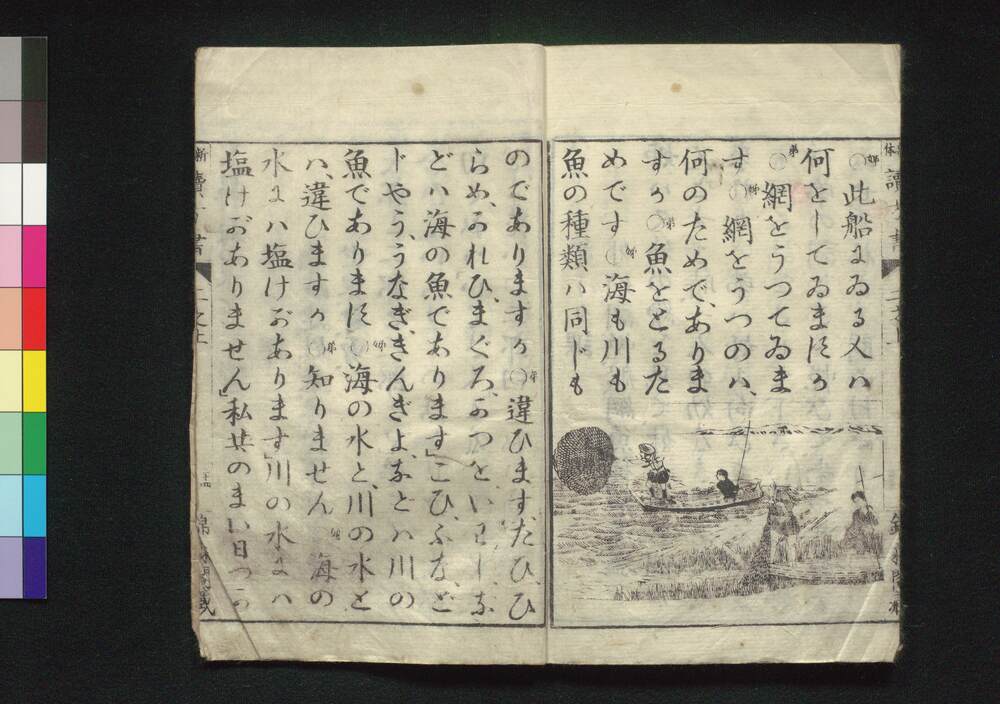 〇姉此船にゐる人ハ
何をしてゐますか
〇弟網をうつてゐま
す〇姉網をうつのハ、
何のためで、ありま
すか〇弟魚をとるた
めです〇姉海も川も
魚の種類ハ同じも
のでありますか〇弟違ひます「たひ、ひ
らめ、かれひ、まぐろ、かつを、いわし、な
どハ海の魚であります」こひ、ふな、ど
ぢやう、うなぎ、きんぎよ、などハ川の
魚であります〇姉海の水と、川の水と
ハ、違ひますか〇弟知りません〇姉海の
水にハ塩けがあります」川の水にハ
塩けがありません」私共のまい日つか